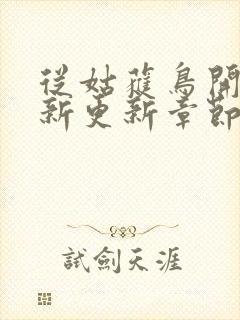 從姑蘿鳥開
新更新章節
試劍天涯